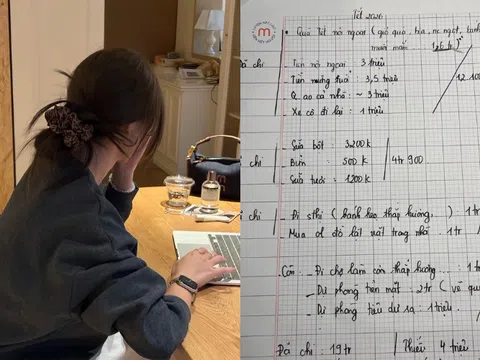 m
Tết 2026
Quà Tết nội ngoại (giỏ quà, bia, nc ngọt, bánh
Đã chi
Tiền nội ngoại 3 triệu
Tiền mừng tuổi : 3,5 triệu
Q áo cả nhà : ~ 3 triệu
Xe cộ đi lại : 1 triệu
12 100
Sữa bột : 3200k
Bỉm : 500k
Sữa tươi : 1200k
4tr 900
chi
chi
Đi sthi (bánh kẹo thắp hương, ) 1 tr
Mua đồ lặt vặt trang nhà 1 tr
Còn : Đi chợ làm cơm thắp hương... : 1 tr
Dự phòng tiền mặt : 2tr ( về quê
Dự phòng tiêu dư ra : 1 triệu
Đã chi : 19 tr
Thiếu 4 triệu